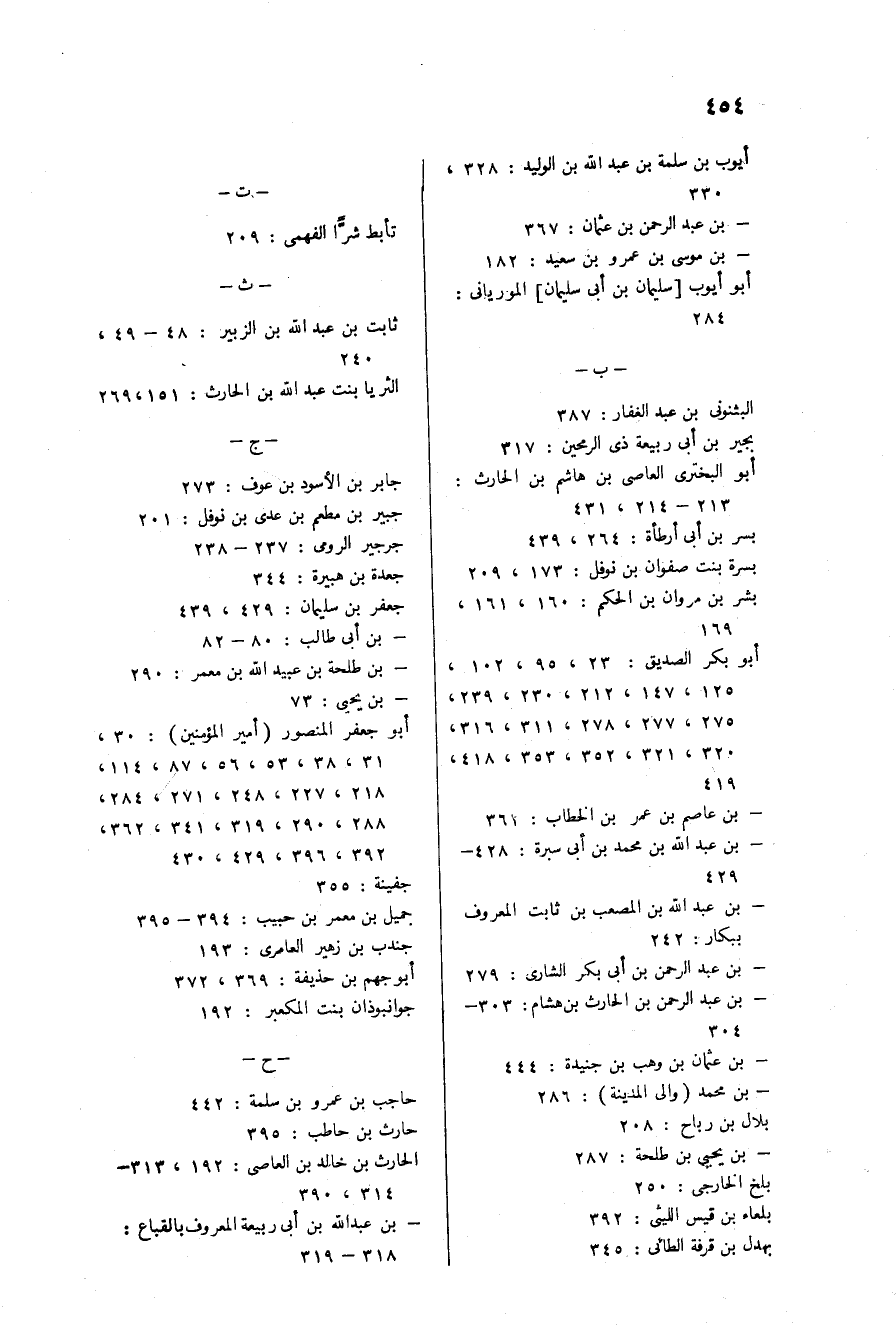 ٤٥٤
أيوب بن سلمة بن عبد الله بن الوليد : ٣٢٨ ،
٣٣٠
— بن عبد الرحمن بن عثمان : ٣٦٧
— بن موسى بن عمرو بن سعيد : ١٨٢
أبو أيوب [سليمان بن أبى سليمان] الموريانى :
٢٨٤
— ب —
البثنونى بن عبد الغفار : ٣٨٧
بجير بن أبى ربيعة ذى الرمحين : ٣١٧
أبو البخترى العاصى بن هاشم بن الحارث :
٢١٣ — ٢١٤ ، ٤٣١
بسر بن أبى أرطأة : ٢٦٤ ، ٤٣٩
بسرة بنت صفوان بن نوفل : ١٧٣ ، ٢٠٩
بشر بن مروان بن الحكم : ١٦٠ ، ١٦١ ،
١٦٩
أبو بكر الصديق : ٢٣ ، ٩٥ ، ١٠٢ ،
١٢٥ ، ١٤٧ ، ٢١٢ ، ٢٣٠ ، ٢٣٩ ،
٢٧٥ ، ٢٧٧ ، ٢٧٨ ، ٣١١ ، ٣١٦ ،
٣٢٠ ، ٣٢١ ، ٣٥٢ ، ٣٥٣ ، ٤١٨ ،
٤١٩
— بن عاصم بن عمر بن الخطاب : ٣٦١
— بن عبد الله بن محمد بن أبى سبرة : ٤٢٨—
٤٢٩
— بن عبد الله بن المصعب بن ثابت المعروف
ببكار : ٢٤٢
— بن عبد الرحمن بن أبى بكر الشارى : ٢٧٩
— بن عبد الرحمن بن الحارث بن هشام : ٣٠٣—
٣٠٤
— بن عثمان بن وهب بن جنيدة : ٤٤٤
— بن محمد (والى المدينة) : ٢٨٦
بلال بن رباح : ٢٠٨
— بن يحيى بن طلحة : ٢٨٧
بلخ الخارجى : ٢٥٠
بلعاء بن قيس الليثى : ٣٩٢
بهدل بن قرفة الطائى : ٣٤٥
— ت —
تأبط شرًّا الفهمى : ٢٠٩
— ث —
ثابت بن عبد الله بن الزبير : ٤٨ — ٤٩ ،
٢٤٠
الثريا بنت عبد الله بن الحارث : ١٥١ ، ٢٦٩
— ج —
جابر بن الأسود بن عوف : ٢٧٣
جبير بن مطعم بن عدى بن نوفل : ٢٠١
جرجير الرومى : ٢٣٧ — ٢٣٨
جعدة بن هبيرة : ٣٤٤
جعفر بن سليمان : ٤٢٩ ، ٤٣٩
— بن أبى طالب : ٨٠ — ٨٢
— بن طلحة بن عبيد الله بن معمر : ٢٩٠
— بن يحيى : ٧٣
أبو جعفر المنصور (أمير المؤمنين) : ٣٠ ،
٣١ ، ٣٨ ، ٥٣ ، ٥٦ ، ٨٧ ، ١١٤ ،
٢١٨ ، ٢٢٧ ، ٢٤٨ ، ٢٧١ ، ٢٨٤ ،
٢٨٨ ، ٢٩٠ ، ٣١٩ ، ٣٤١ ، ٣٦٢ ،
٣٩٢ ، ٣٩٦ ، ٤٢٩ ، ٤٣٠
جفينة : ٣٥٥
جميل بن معمر بن حبيب : ٣٩٤ — ٣٩٥
جندب بن زهير العامرى : ١٩٣
أبو جهم بن حذيفة : ٣٦٩ ، ٣٧٢
جوانبوذان بنت المكعبر : ١٩٢
— ح —
حاجب بن عمرو بن سلمة : ٤٤٢
حارث بن حاطب : ٣٩٥
الحارث بن خالد بن العاصى : ١٩٢ ، ٣١٣—
٣١٤ ، ٣٩٠
— بن عبدالله بن أبى ربيعة المعروف بالقباع :
٣١٨ — ٣١٩